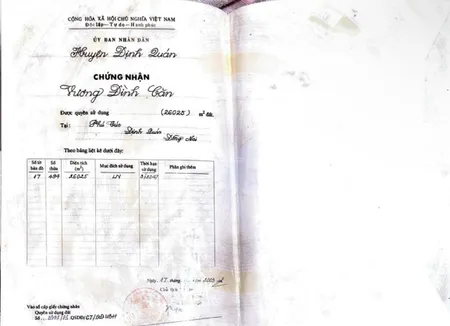 CỘNG HÒA XÃ HỘI CHỦ NGHĨA VIỆT NAM
Độc lập - Tự do - Hạnh phúc
ỦY BAN NHÂN DÂN
Huyện Định Quán
CHỨNG NHẬN
Vương Đình Cần
Được quyền sử dụng (26025) m² đất
Tại: Phú
Định Quán
Đồng Nai
Theo bảng liệt kê dưới đây:
Số tờ bản đồ Số thửa Diện tích (m²) Mục đích sử dụng Thời hạn sử dụng Phần ghi thêm
17 494 26025 LN
Ngày 17 tháng năm 2003
Vào sổ cấp giấy chứng nhận
Quyền sử dụng đất
Số